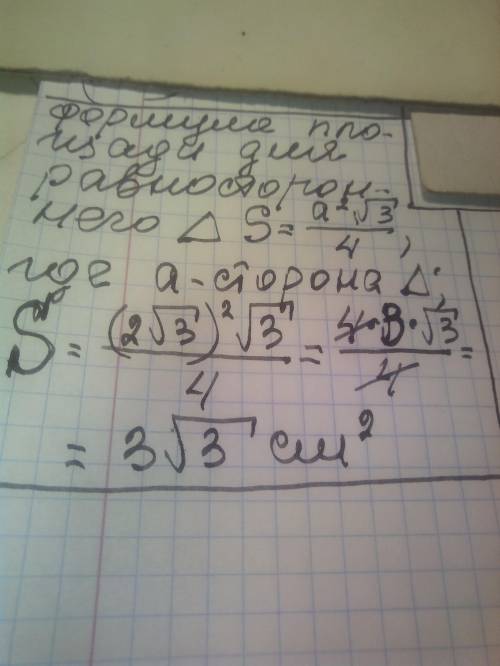 формула пло-
щади для
равносторон-
него △ S = a²√3/4,
где a-сторона △;
S = (2√3)²√3/4 = 4·3·√3/4 =
= 3√3 см²